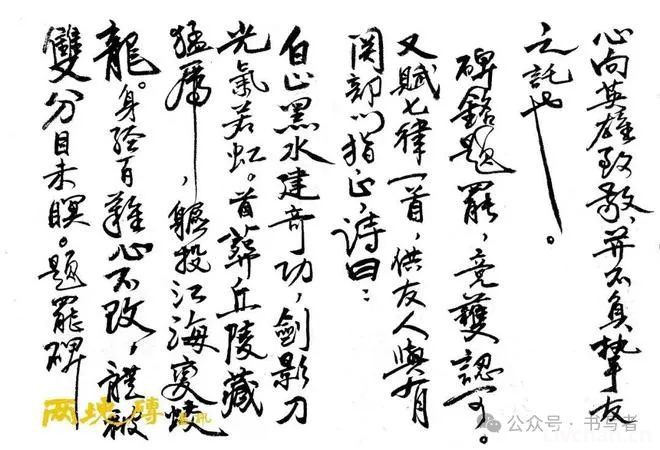 心向英雄致敬，并不負摯友
之託也。
碑銘題罷，竟獲認可。
又賦七律一首，供友人與有
関部门指正，詩曰：
白山黑水建奇功，劍影刀
光氣若虹。首葬丘陵藏
猛虎，軀投江海變蛟
龍。身经百難心不改，體被
雙分目未瞑。題罷碑
两块磚
公众号·书写者